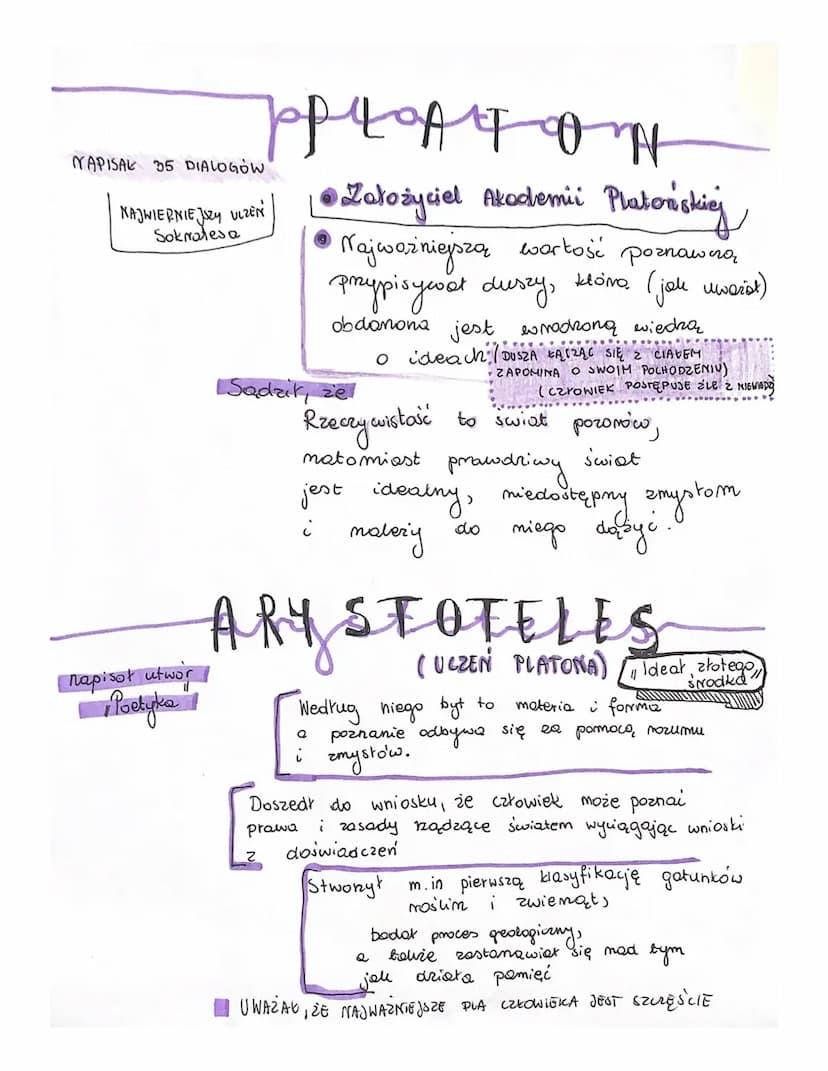 PLATON
NAPISAŁ 35 DIALOGÓW
NAJWIERNIEJSZY UCZEŃ
Sokratesa
Założyciel Akademii Platońskiej
Najważniejszą wartość poznawczą
przypisywał duszy, która (jak uważał)
obdarzona jest wrodzoną wiedzą
o ideach
(DUSZA ŁĄCZĄC SIĘ Z CIAŁEM
ZAPOMINA O SWOIM POCHODZENIU)
(CZŁOWIEK POSTĘPUJE ŹLE Z NIEWIEDZY
Sądził, że
Rzeczywistość to świat pozorów,
natomiast prawdziwy świat
jest idealny, niedostępny zmysłom
i należy do niego dążyć.
ARYSTOTELES
(UCZEŃ PLATONA)
"Ideał złotego
środka"
napisał utwór
"Poetyka"
Według niego byt to materia i forma
a poznanie odbywa się za pomocą rozumu
i zmysłów.
Doszedł do wniosku, że człowiek może poznać
prawa i zasady rządzące światem wyciągając wnioski
z doświadczeń
Stworzył m.in pierwszą klasyfikację gatunków
roślin i zwierząt,
badał proces geologiczny,
a także zastanawiał się nad tym
jak działa pamięć
UWAŻAŁ, ŻE NAJWAŻNIEJSZE DLA CZŁOWIEKA JEST SZCZĘŚCIE